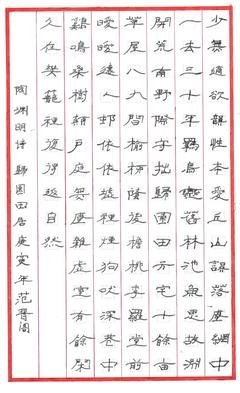 少無適欲韻性本愛丘山誤落塵網中
一去三十年羈鳥戀舊林池魚思故淵
開荒南野際守拙歸園田方宅十餘畝
草屋八九間榆柳蔭後檐桃李羅堂前
曖曖遠人邨依依墟裡煙狗吠深巷中
鷄鳴桑樹顛戶庭無塵雜虛室有餘閑
久在樊籠裡復得返自然
陶淵明詩 歸園田居 庚寅年范